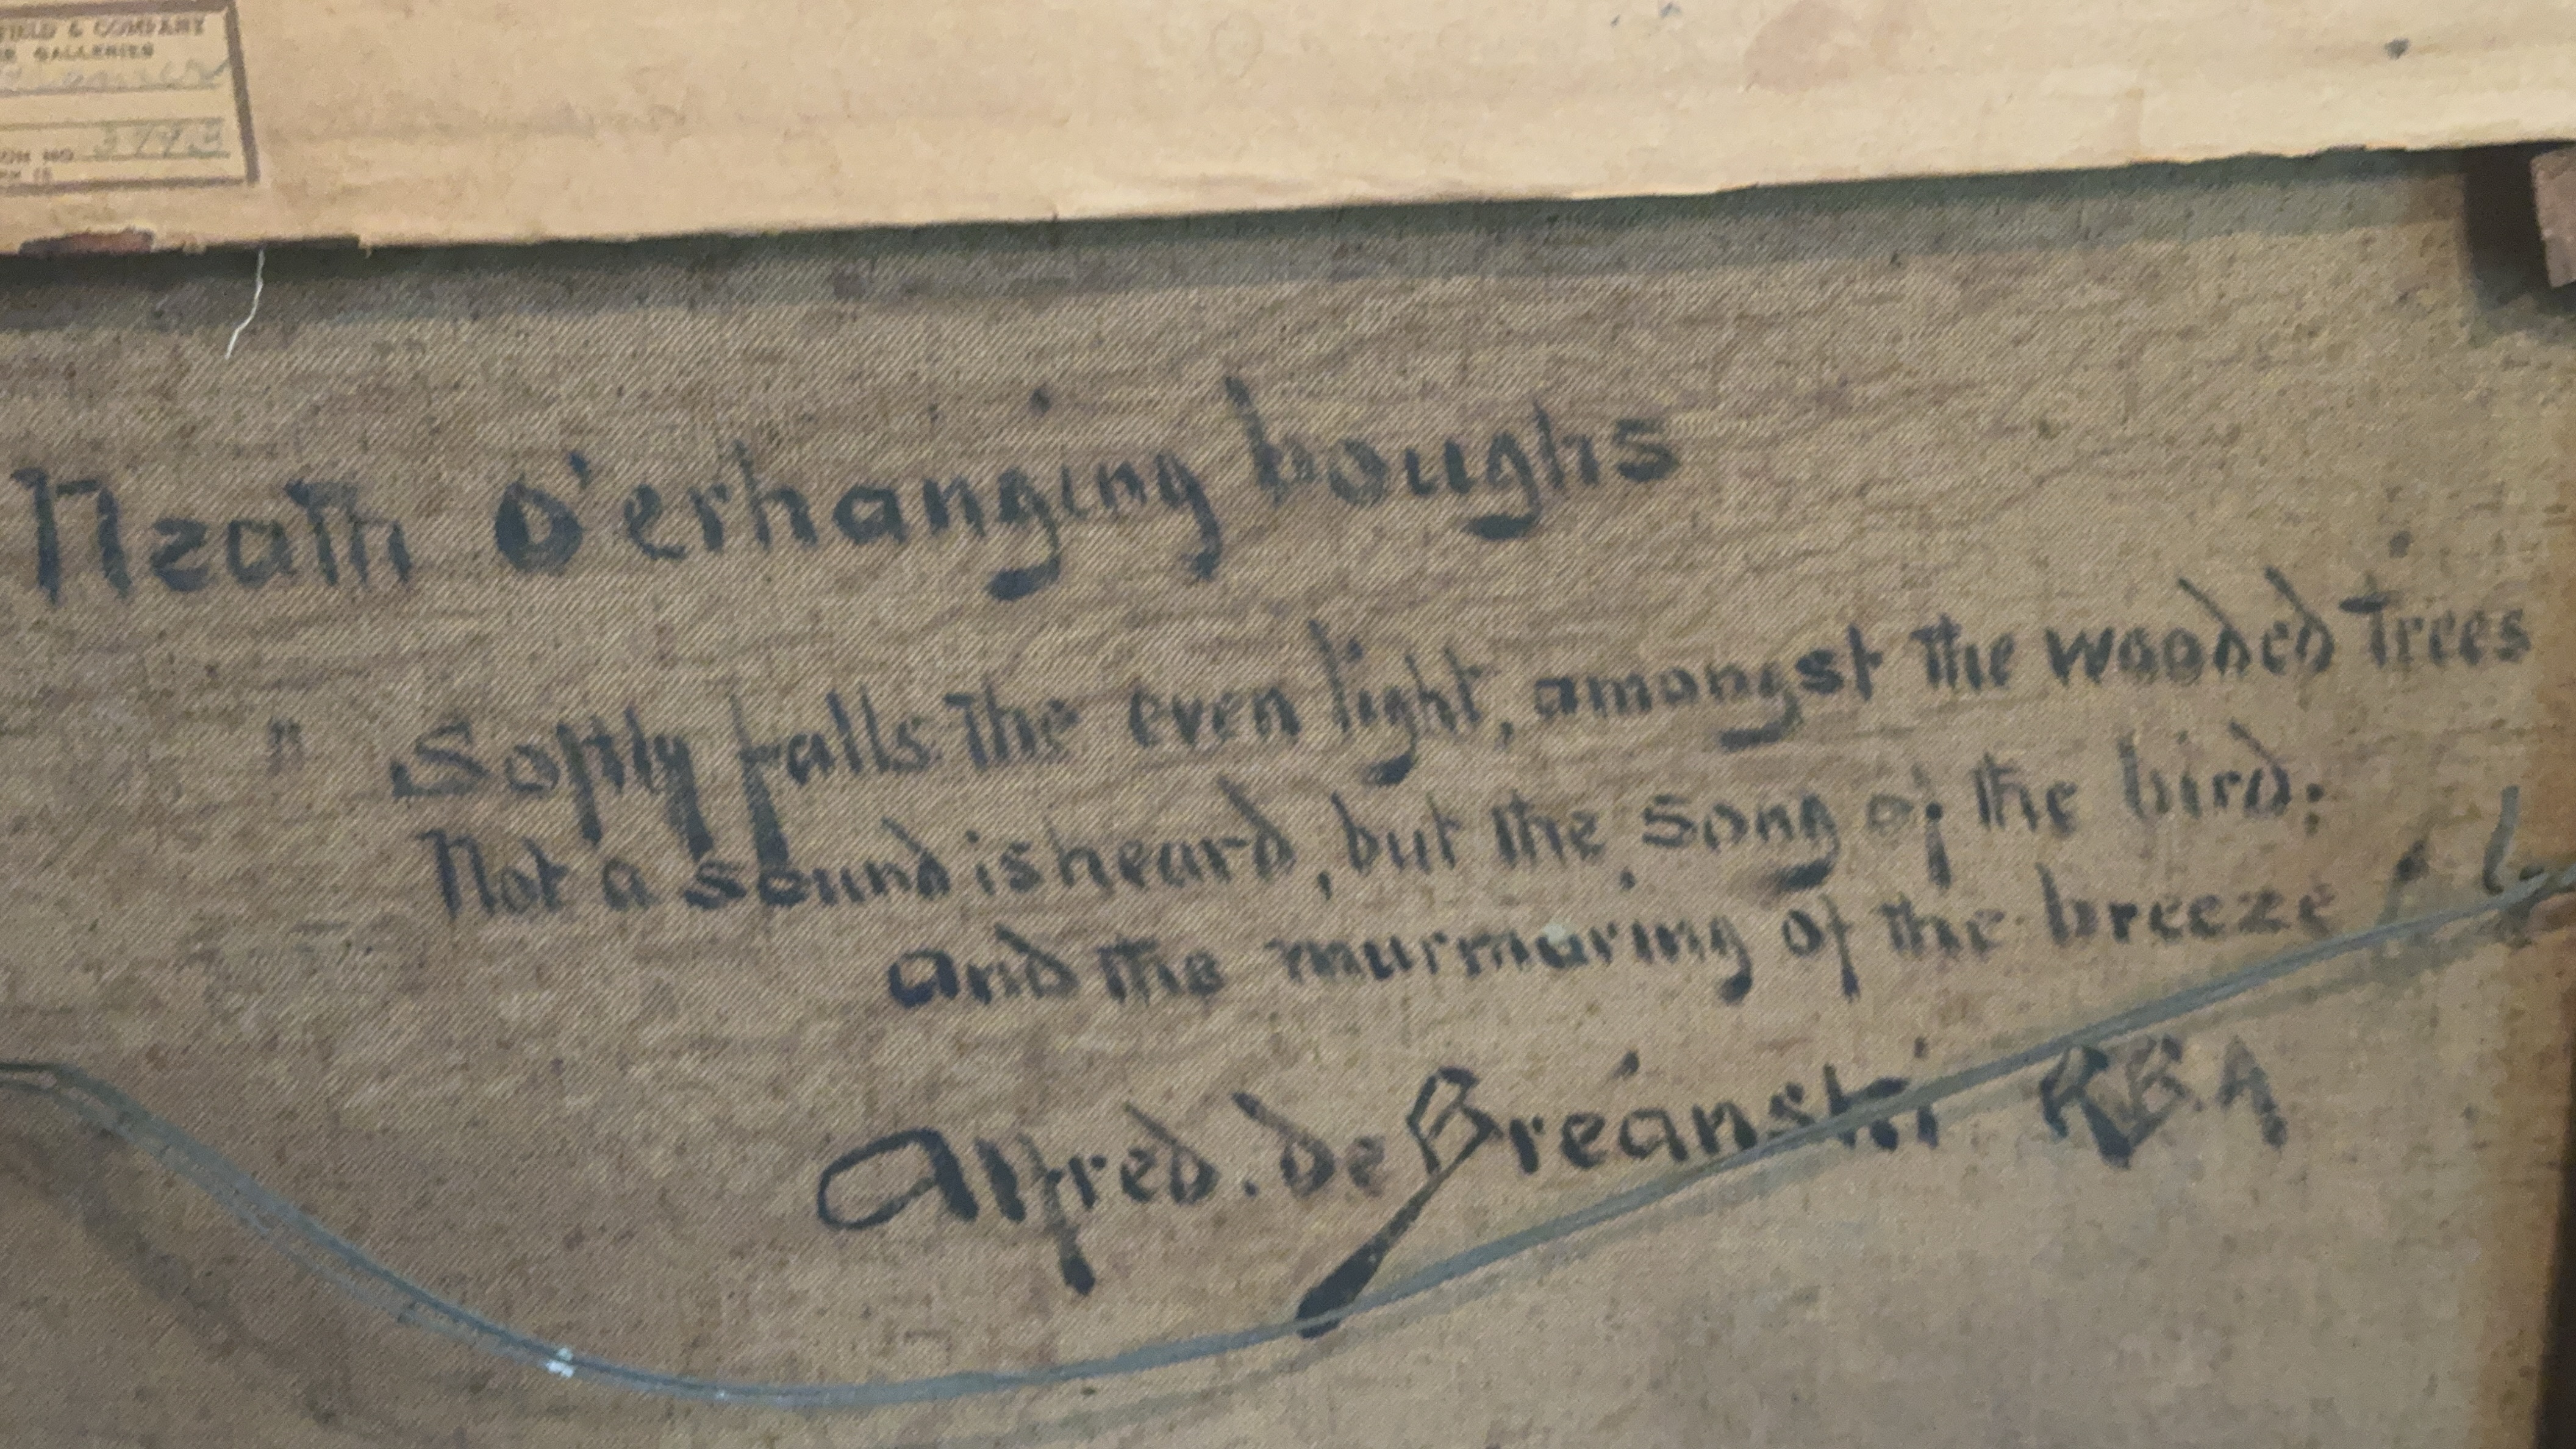 FIELD & COMPANY
GALLERIES
NO 3793
Neath O'erhanging boughs
" Softly falls the even light, amongst the wooded trees
Not a sound is heard, but the song of the bird;
and the murmuring of the breeze
Alfred. de Bréanski R.B.A